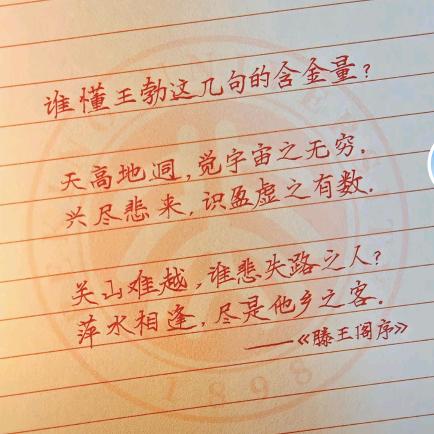 谁懂王勃这几句的含金量?
天高地洞,觉宇宙之无穷.
兴尽悲来,识盈虚之有数.
关山难越,谁悲失路之人?
萍水相逢,尽是他乡之客.
——《滕王阁序》
1898